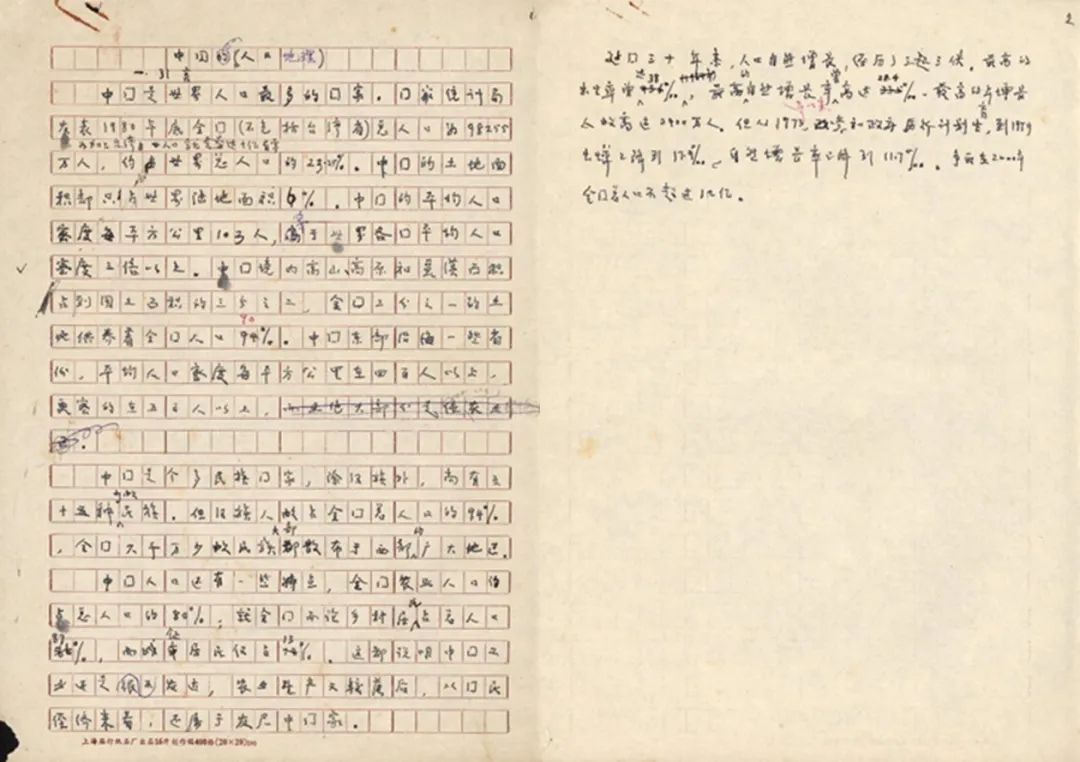 中国的(人口地理)
一、引言
中国是世界人口最多的国家。国家统计局
发表1980年底全国(不包括台湾省)总人口为98255
万人, 约占世界总人口的23%。中国的土地面
积却只占世界陆地面积6%。中国的平均人口
密度每平方公里103人, 高于世界各国平均人口
密度三倍以上。中国境内高山、高原和荒漠面积
占到国土面积的三分之二, 全国三分之一的土
地供养着全国人口90%。中国东部沿海一些省
份, 平均人口密度每平方公里在四百人以上,
更密的在五百人以上,
中国是个多民族国家, 除汉族外, 尚有五
十五种少数民族。但汉族人数占全国总人口的94%
, 全国六千万少数民族大部都散布于西部的广大地区。
中国人口还有一些特点, 全国农业人口约
占总人口的80%, 就全国而论乡村居民占总人口
87%, 而城镇居民仅占13%。这都说明中国工
业还是很不发达, 农业生产又较落后, 以国民
经济来看, 还属于发展中国家。
上海 纸品厂出品16开创作稿400格(20×20)
2
建国三十年来, 人口自然增长, 经历了三起三伏。最高的
出生率曾达38‰, 最高的自然增长率曾高达28.4‰。最高的年增长
人数高达2400万人。但从1973, 政府厉行计划生育, 到1979
出生率下降到17‰, 自然增长率下降到11.7‰。争取在2000年
全国总人口不超过12亿。